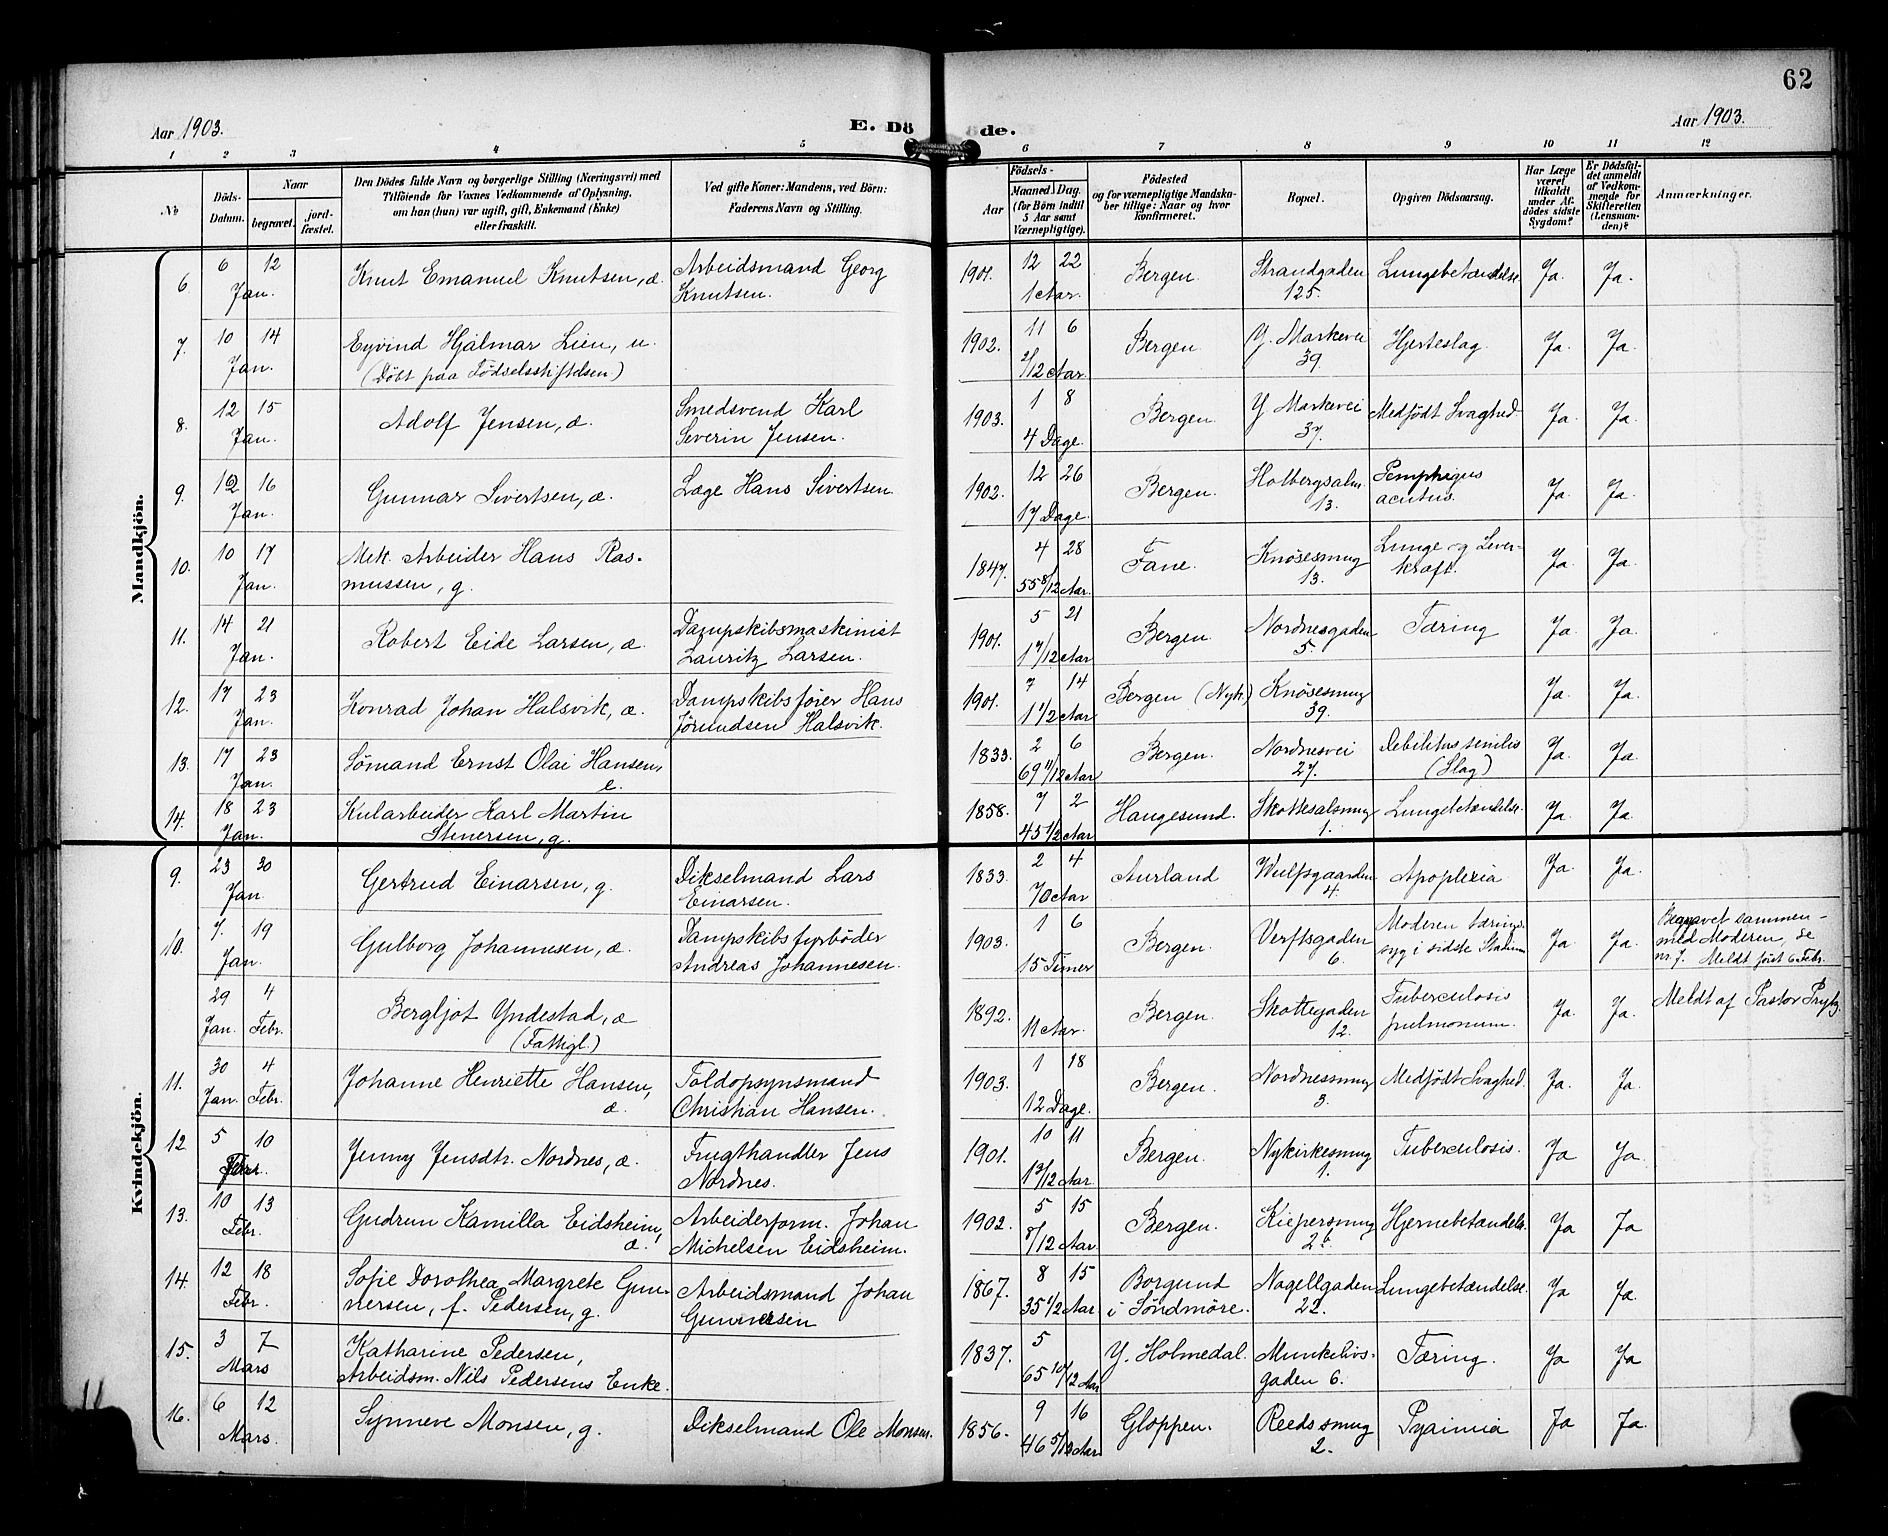 62
Aar 1903.
E. Dö
öde.
Aar 1903.
1 2 3 4 5 6 7 8 9 10 11 12
No
Döds-Datum.
Naar
begravet.
jord-fæstet.
Den Dödes fulde Navn og borgerlige Stilling (Næringsvei) med
Tilföiende for Voxnes Vedkommende af Oplysning,
om han (hun) var ugift, gift, Enkemand (Enke)
eller fraskilt.
Ved gifte Koner: Mandens, ved Börn:
Faderens Navn og Stilling.
Födsels-
Aar
Maaned. Dag.
(for Börn indtil
5 Aar samt
Værnepligtige).
Födested
og for værnepligtige Mandska-
ber tillige: Naar og hvor
konfirmeret.
Bopæl.
Opgiven Dödsaarsag.
Har Læge
været
tilkaldt
under Af-
dödes sidste
Sygdom?
Er Dödsfal-
det anmeldt
af Vedkom-
mende for
Skifteretten
(Lensman-
den)?
Anmærkninger.
Mandkjön.
6. 6 12 Knut Emanuel Knutsen, æ. Arbeidsmand Georg 1901. 12 22 Bergen Strandgaden Lungebetændelse. Ja. Ja.
Jan. Knutsen. 1 Aar. 125.
7. 10 14 Eyvind Hjalmar Lien, u. 1902. 11 6 Bergen Y. Markevei Hjerteslag Ja. Ja.
Jan. (Döbt paa Födselsstiftelsen) 2/12 Aar. 39.
8. 12 15 Adolf Jensen, æ. Smedsvend Karl 1903. 1 8 Bergen. Y. Markevei Medfödt Svaghed Ja. Ja.
Jan. Severin Jensen. 4 Dage. 37.
9. 12 16 Gunnar Sivertsen, æ. Læge Hans Sivertsen 1902. 12 26 Bergen. Holbergsalm. Pemphigus Ja. Ja.
Jan. 17 Dage. 13. acutus.
10. 10 17 Mek. Arbeider Hans Ras- 1847. 4 28 Fane. Knösesmug Lunge og Lever- Ja. Ja.
Jan. mussen, g. 55 8/12 Aar. 13. kræft.
11. 14 21 Robert Eide Larsen, æ. Dampskibsmaskinist 1901. 5 21 Bergen. Nordnesgaden Tæring Ja. Ja.
Jan. Lauritz Larsen. 1 7/12 Aar 5.
12. 17 23 Konrad Johan Halsvik, æ. Dampskibsförer Hans 1901. 7 14 Bergen (Nyk.) Knösesmug Ja. Ja.
Jan. Jörundsen Halsvik. 1 1/2 Aar 39.
13. 17 23 Sömand Ernst Olai Hansen, 1833. 2 6 Bergen. Nordnesvei Debilitas senilis Ja. Ja.
Jan. e. 69 11/12 Aar 27. (Slag)
14. 18 23 Kularbeider Karl Martin 1858. 7 2 Haugesund. Skottesalsmug Lungebetændelse. Ja. Ja.
Jan. Stenersen, g. 45 1/2 Aar 1.
Kvindekjön.
9. 23 30 Gertrud Einarsen, g. Dikselmand Lars 1833. 2 4 Aurland Wulfsgaarden Apoplexia Ja. Ja.
Jan. Einarsen. 70 Aar 4.
10. 7. 19 Gulborg Johannesen, æ. Dampskibsfyrböder 1903. 1 6 Bergen. Verftsgaden Moderen tærings- Ja. Ja. Begravet sammen-
Jan. Andreas Johannesen. 15 Timer 6. syg i sidste Stadium med Moderen, se
nr. 7. Meldt först 6 Febr.
29 4 Bergljot Yndestad, æ 1892. Bergen. Skottegaden Tuberculosis Ja. Ja. Meldt af Pastor Prytz.
Jan. Febr. (Fattigl.) 11 Aar. 12. pulmonum.
11. 30 4 Johanne Henriette Hansen, Toldopsynsmand 1903. 1 18 Bergen. Nordnessmug Medfödt Svaghed. Ja. Ja.
Jan. Febr. æ. Christian Hansen. 12 Dage. 3.
12. 5 10 Jenny Jensdtr. Nordnes, æ. Frugthandler Jens 1901. 10 11 Bergen. Nykirkesmug Tuberculosis. Ja Ja
Febr. Nordnes. 1 3/12 Aar. 1.
13. 10 13 Gudrun Kamilla Eidsheim, Arbeiderform. Johan 1902. 5 15 Bergen. Kiepersmug Hjernebetændels. Ja Ja
Febr. æ. Michelsen Eidsheim. 8/12 Aar. 2 b.
14. 12 18 Sofie Dorothea Margrete Gun- Arbeidsmand Johan 1867. 8 15 Borgund Nagellgaden Lungebetændelse. Ja Ja.
Febr. nersen, f. Pedersen, g. Gunnersen 35 1/2 Aar i Söndmöre. 22.
15. 3 7 Katharine Pedersen, 1837. 5 Y. Holmedal. Munkelivs- Tæring. Ja Ja
Mars Arbeidsm. Nils Pedersens Enke. 65 10/12 Aar gaden 6.
16. 6 12 Synneve Monsen, g. Dikselmand Ole Monsen. 1856. 9 16 Gloppen. Reedssmug Pyaimia Ja Ja.
Mars. 46 5/12 Aar 2.